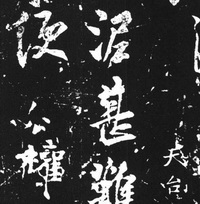 天台
泥甚難
便
公權